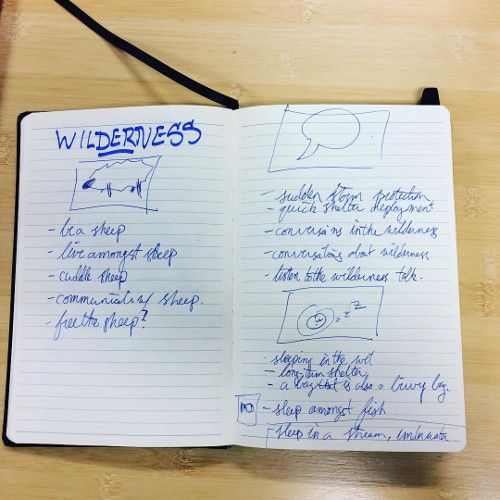 WILDERNESS
- be a sheep
- live amongst sheep
- cuddle sheep
- communicate w/ sheep.
- free the sheep?
- sudden storm protection
- quick shelter deployment
- conversions in the wilderness
- conversations about wilderness
- listen to the wilderness talk.
z z Z
- sleeping in the wet
- long-term shelter
- a bag that is also a bivvy bag.
- sleep amongst fish
- sleep in a stream, underwater